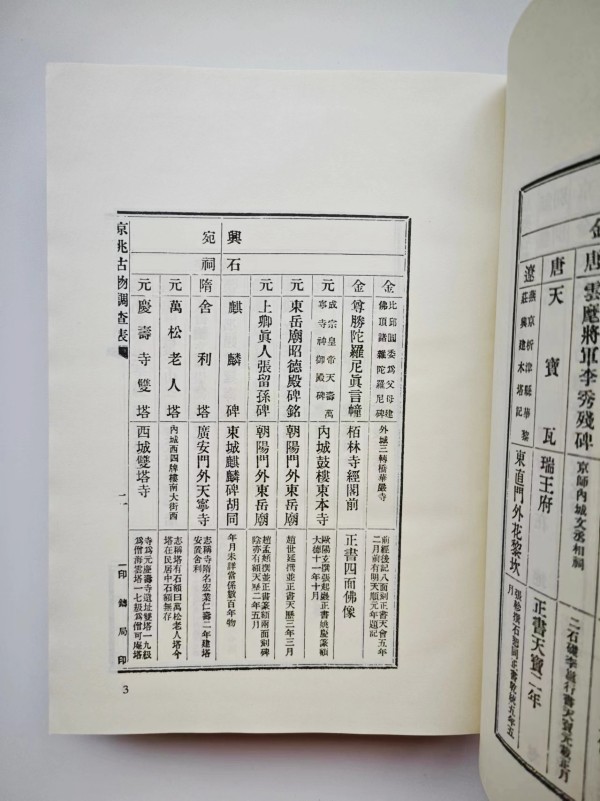 唐
雲麾將軍李秀殘碑
京師內城文丞相祠
二石礎李邕行書天寶元載正月
唐
天寶瓦
瑞王府
正書天寶二年
遼
燕京析津縣華黎
莊興建木塔記
東直門外花黎坎
興
石
宛
祠
金
比邱圓委爲父母建
佛頂諸羅陀羅尼碑
外城三轉橋華嚴寺
前經後記八面刻正書天會五年
二月前有明天順元年題記
金
尊勝陀羅尼眞言幢
栢林寺經閣前
正書四面佛像
元
成宗皇帝天壽萬
寧寺神御殿碑
內城鼓樓東本寺
歐陽玄撰張起巖正書姚慶篆額
大德十一年十月
元
東岳廟昭德殿碑銘
朝陽門外東岳廟
趙世延撰並正書天歷三年三月
元
上卿眞人張留孫碑
朝陽門外東岳廟
趙孟頫撰並正書篆額兩面刻碑
陰亦有額天歷二年五月
麒麟碑
東城麒麟碑胡同
年月未詳當係數百年物
隋
舍利塔
廣安門外天寧寺
志稱寺隋名宏業仁壽二年建塔
安置舍利
元
萬松老人塔
內城西四牌樓南大街西
志稱塔有石額曰萬松老人塔今
塔在民居中石額無存
元
慶壽寺雙塔
西城雙塔寺
寺爲元慶壽寺遺址雙塔一九極
爲僧海雲塔一七極爲僧可庵塔
京兆古物調查表
二
印鑄局印
3